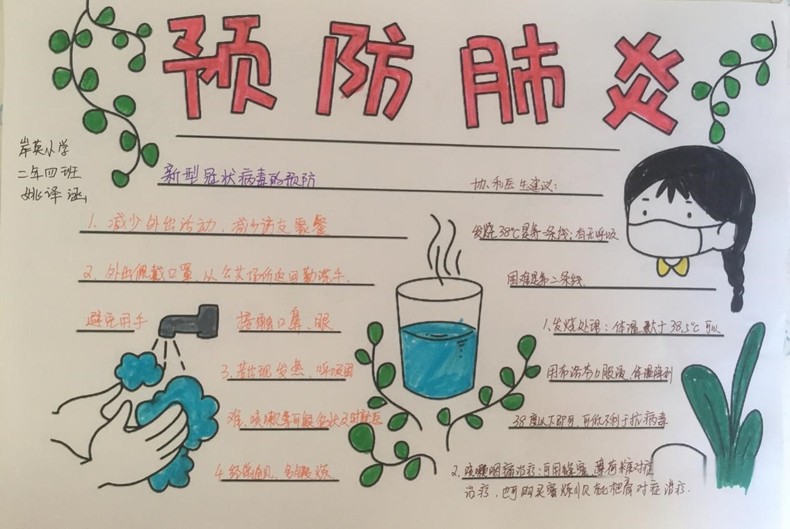 预防肺炎
岸英小学
二年四班
姚译涵
新型冠状病毒的预防
1. 减少外出活动，减少访友聚餐
2. 外出佩戴口罩，从公共场所返回勤洗手.
避免用手 接触口鼻、眼
3. 若出现发热、呼吸困
难，咳嗽等可能症状及时就医
4.
协和医生建议：
发烧38℃是第一条线；有无呼吸
困难是第二条线
1. 发烧处理：体温大于38.5℃可以
用布洛芬口服液，体温降到
38度以下即可，可能不利于抗病毒
2. 咳嗽咽痛治疗：可用
治疗，也可购买蜜炼川贝枇杷膏对症治疗.